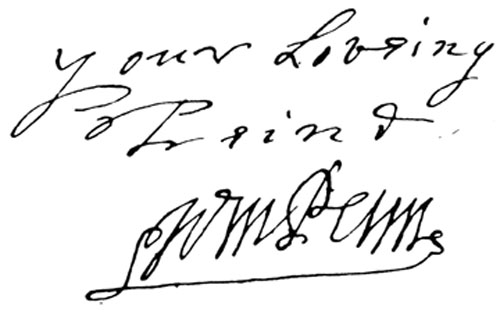 your Loveing
ffreind
Wm Penn